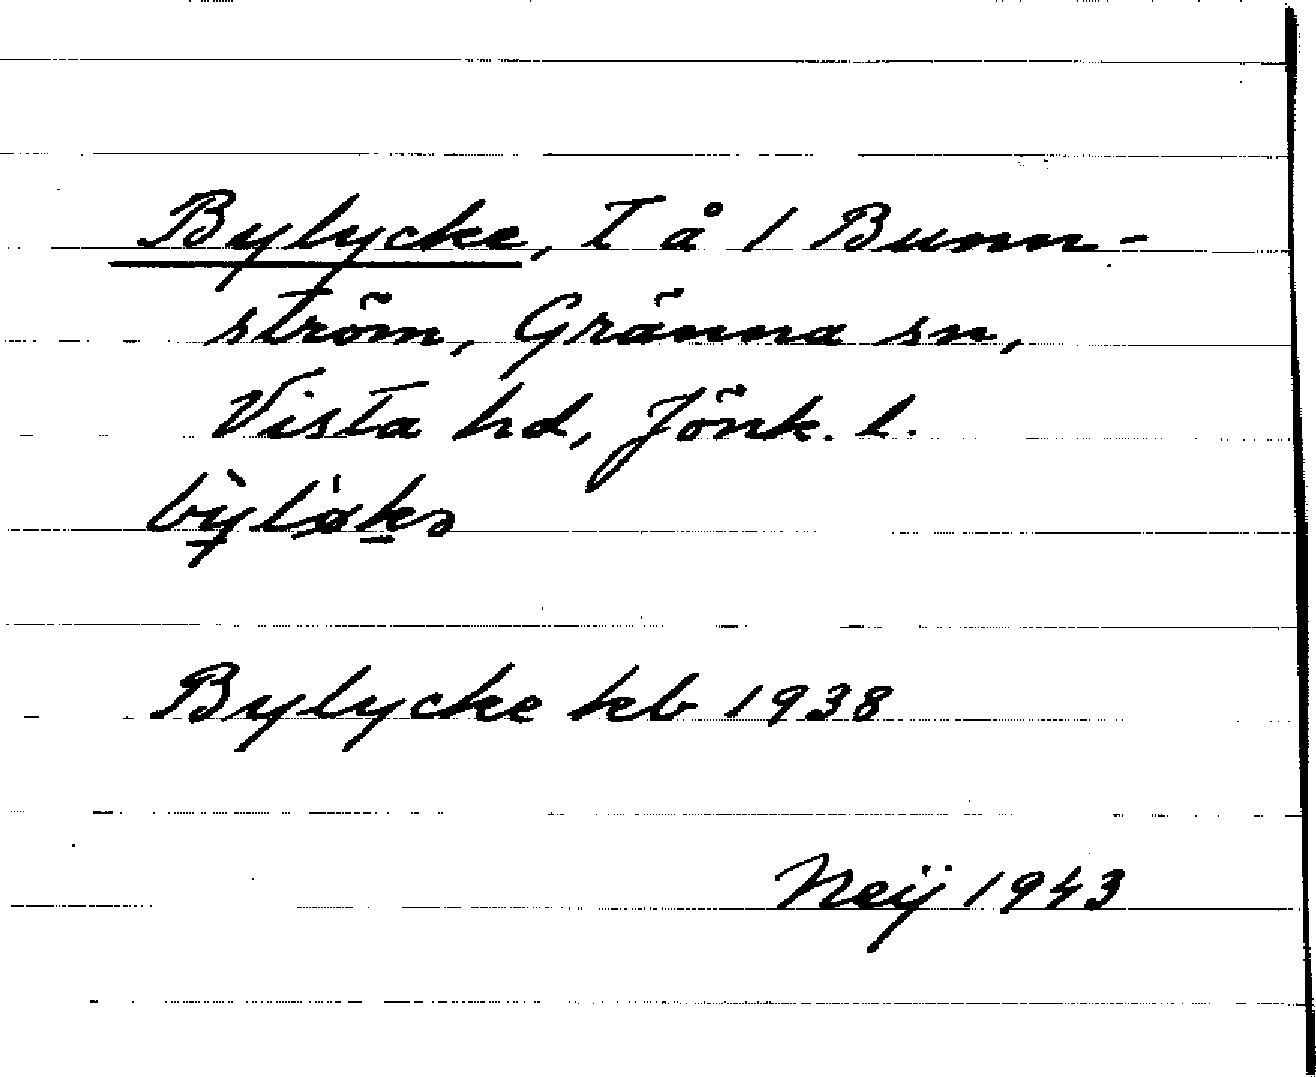 Bylycke, T å 1 Bunn-
ström, Gränna sn,
Vista hd, Jönk. l.
Bylycke kb 1938
Neij 1943